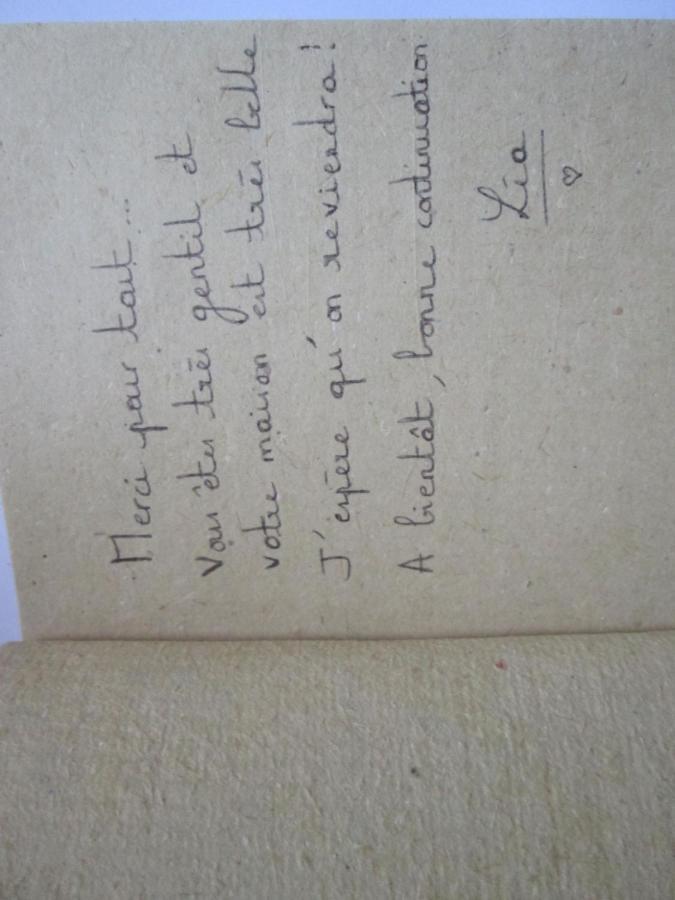 Merci pour tout...
Vous êtes très gentil et
votre maison est très belle
J'espère qu'on reviendra!
A bientôt, bonne continuation
Léa
♡